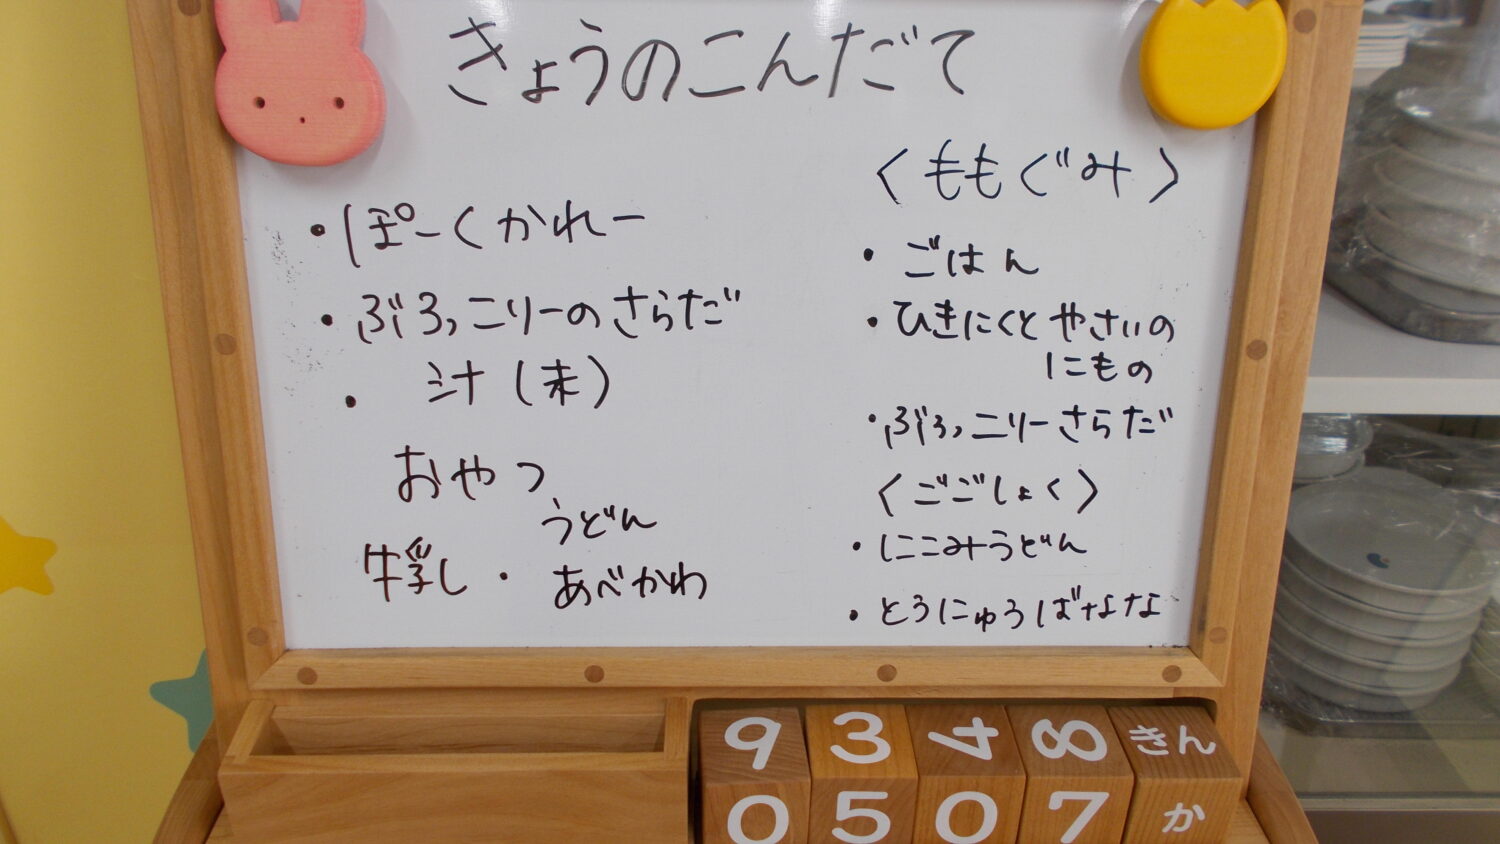 きょうのこんだて
・ぽーくかれー
・ぶろっこりーのさらだ
・汁(末)
おやつ
うどん
牛乳・あべかわ
〈ももぐみ〉
・ごはん
・ひきにくとやさいの
にもの
・ぶろっこりーさらだ
〈ごごしょく〉
・にこみうどん
・とうにゅうばなな
9 3 4 8 きん
0 5 0 7 か